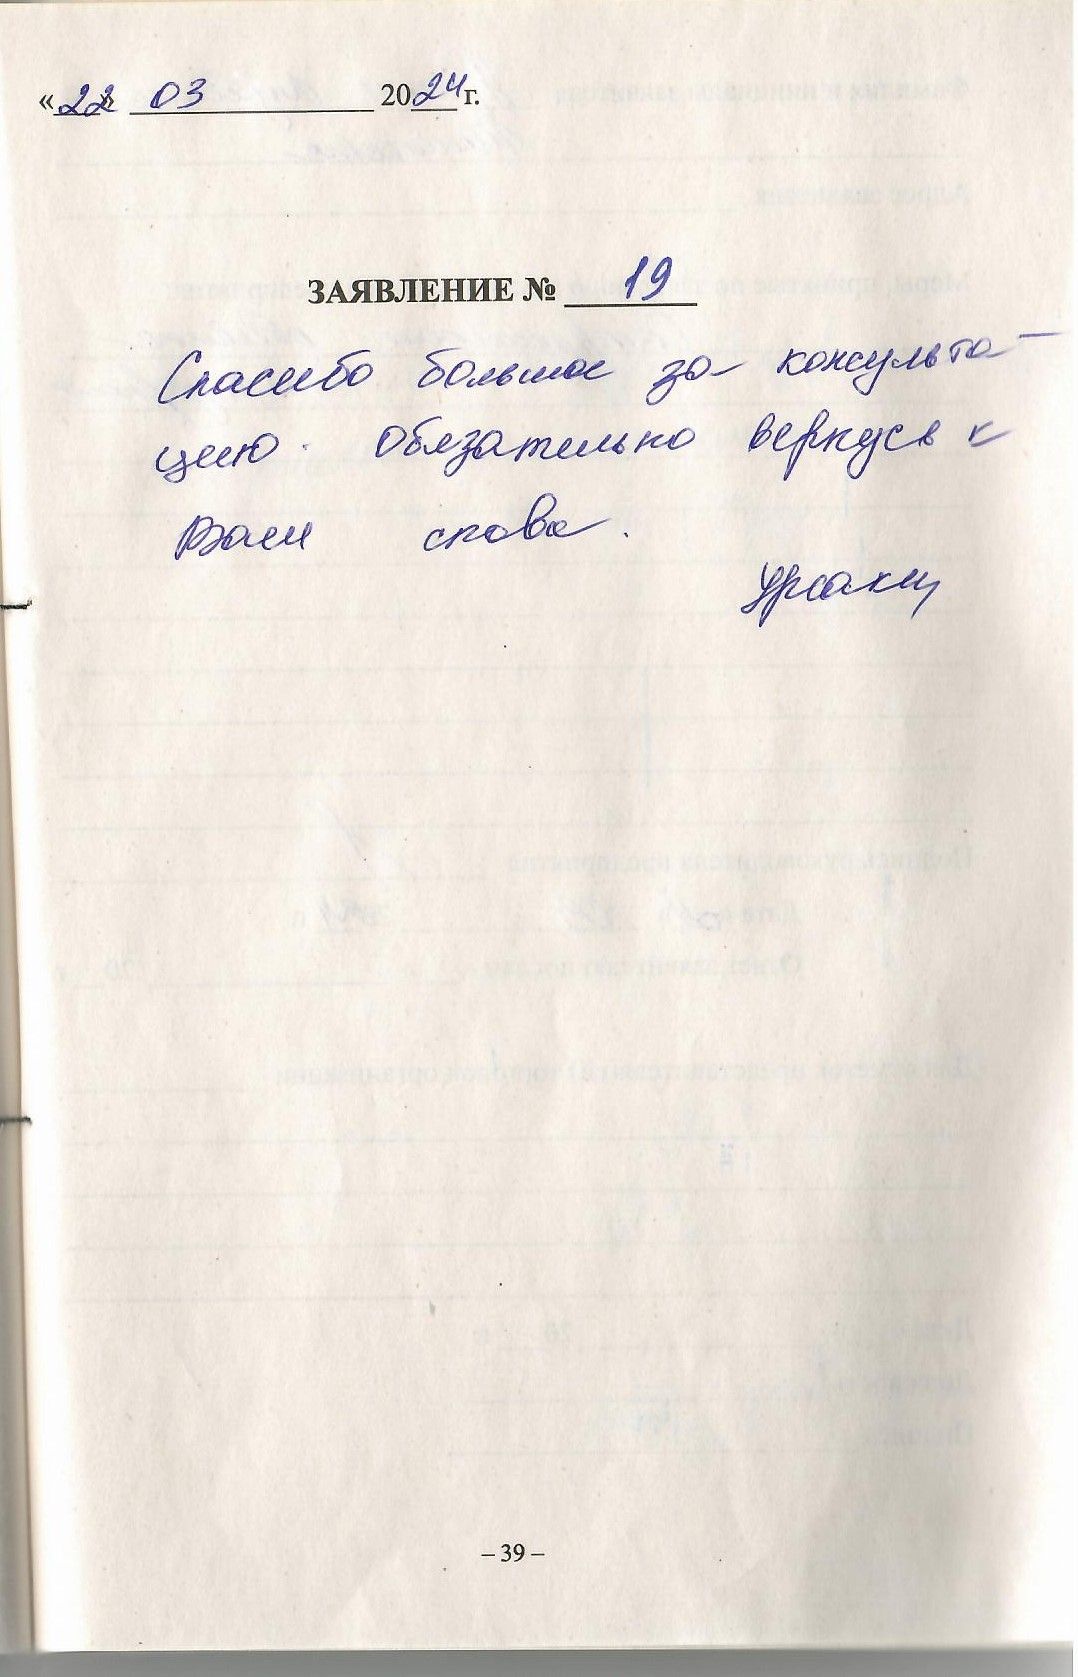 «22» 03 2024 г.
ЗАЯВЛЕНИЕ № 19
Спасибо большое за консульта-
цию. Обязательно вернусь к
Вам снова.
– 39 –